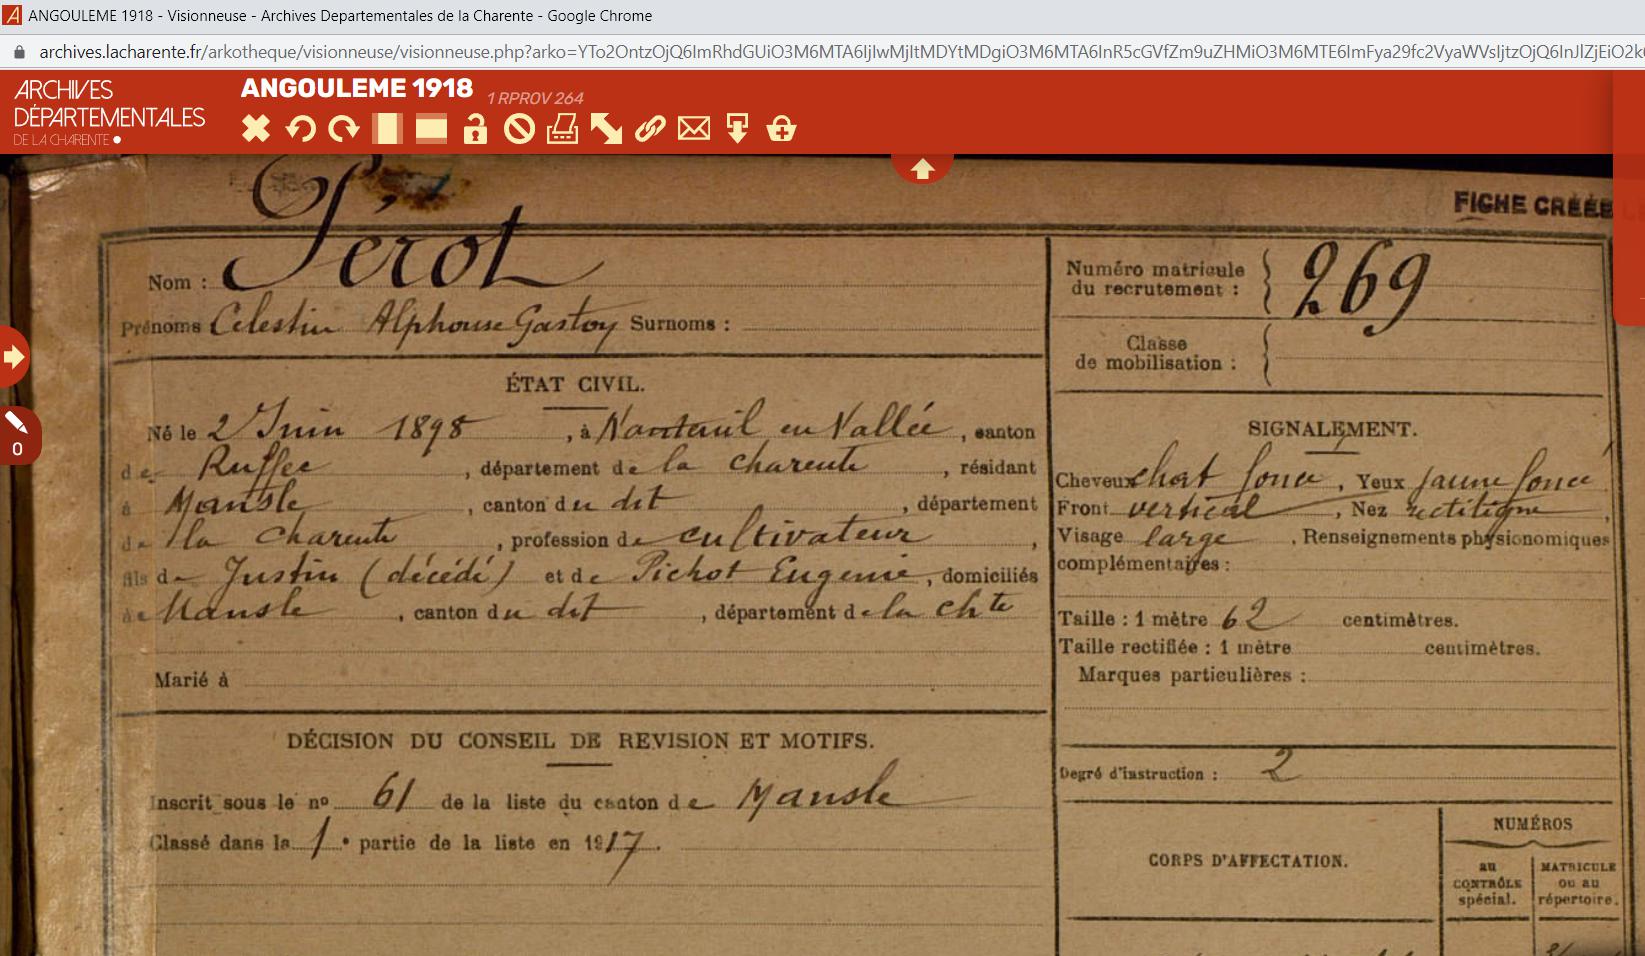 ANGOULEME 1918 - Visionneuse - Archives Departementales de la Charente - Google Chrome
archives.lacharente.fr/arkotheque/visionneuse/visionneuse.php?arko=
ARCHIVES
DÉPARTEMENTALES
DE LA CHARENTE
ANGOULEME 1918 1 RPROV 264
0
FICHE CRÉÉE
Nom : Pérot
Prénoms Celestin Alphonse Gaston Surnoms :
Numéro matricule
du recrutement : 269
Classe
de mobilisation :
ÉTAT CIVIL.
Né le 2 Juin 1898, à Nanteuil en Vallée, canton
de Ruffec, département de la charente, résidant
à Mansle, canton du dit, département
de la Charente, profession de cultivateur,
fils de Justin (décédé) et de Pichot Eugenie, domiciliés
à Mansle, canton du dit, département de la chte
Marié à
DÉCISION DU CONSEIL DE REVISION ET MOTIFS.
Inscrit sous le nº 61 de la liste du canton de Mansle
Classé dans la 1e partie de la liste en 1917.
SIGNALEMENT.
Cheveux chat foncé, Yeux jaune foncé
Front vertical, Nez rectiligne,
Visage large. Renseignements physionomiques
complémentaires :
Taille : 1 mètre 62 centimètres.
Taille rectifiée : 1 mètre centimètres.
Marques particulières :
Degré d'instruction : 2
CORPS D'AFFECTATION.
NUMÉROS
au
CONTRÔLE
spécial.
MATRICULE
ou au
répertoire.